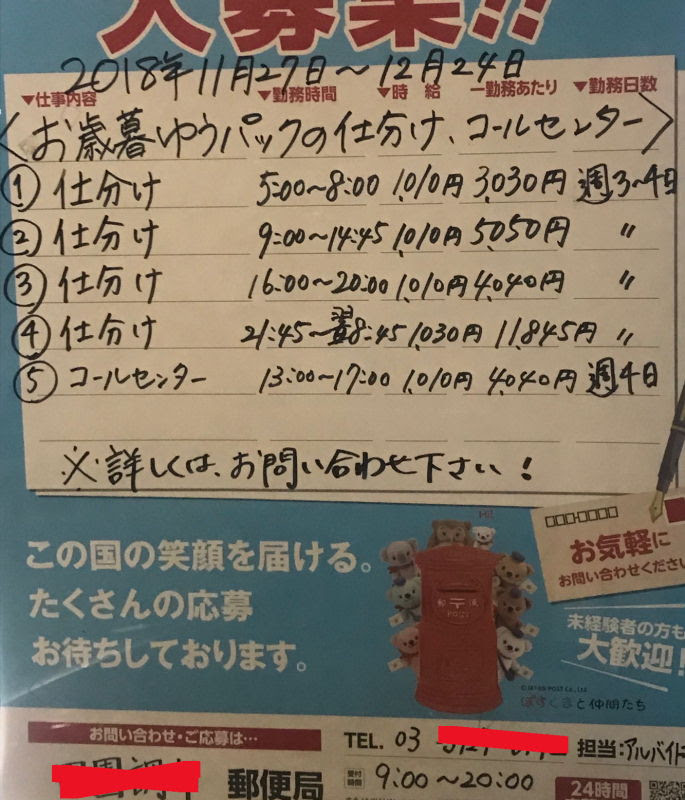 人募集!!
2018年11月27日～12月24日
▼仕事内容 ▼勤務時間 ▼時 給 一勤務あたり ▼勤務日数
〈お歳暮ゆうパックの仕分け、コールセンター〉
① 仕分け 5:00～8:00 1,010円 3,030円 週3~4日
② 仕分け 9:00～14:45 1,010円 5,050円 〃
③ 仕分け 16:00～20:00 1,010円 4,040円 〃
④ 仕分け 21:45～翌8:45 1,030円 11,845円 〃
⑤ コールセンター 13:00～17:00 1,010円 4,040円 週4日
※詳しくは、お問い合わせ下さい！
Hi!
お気軽に
お問い合わせください
この国の笑顔を届ける。
たくさんの応募
お待ちしております。
郵 〒 便
POST
未経験者の方も
大歓迎!
©JAPAN POST Co., Ltd.
ぽすくまと仲間たち
お問い合わせ・ご応募は…
TEL. 03 担当:アルバイト
郵便局
受付時間 9:00～20:00
24時間